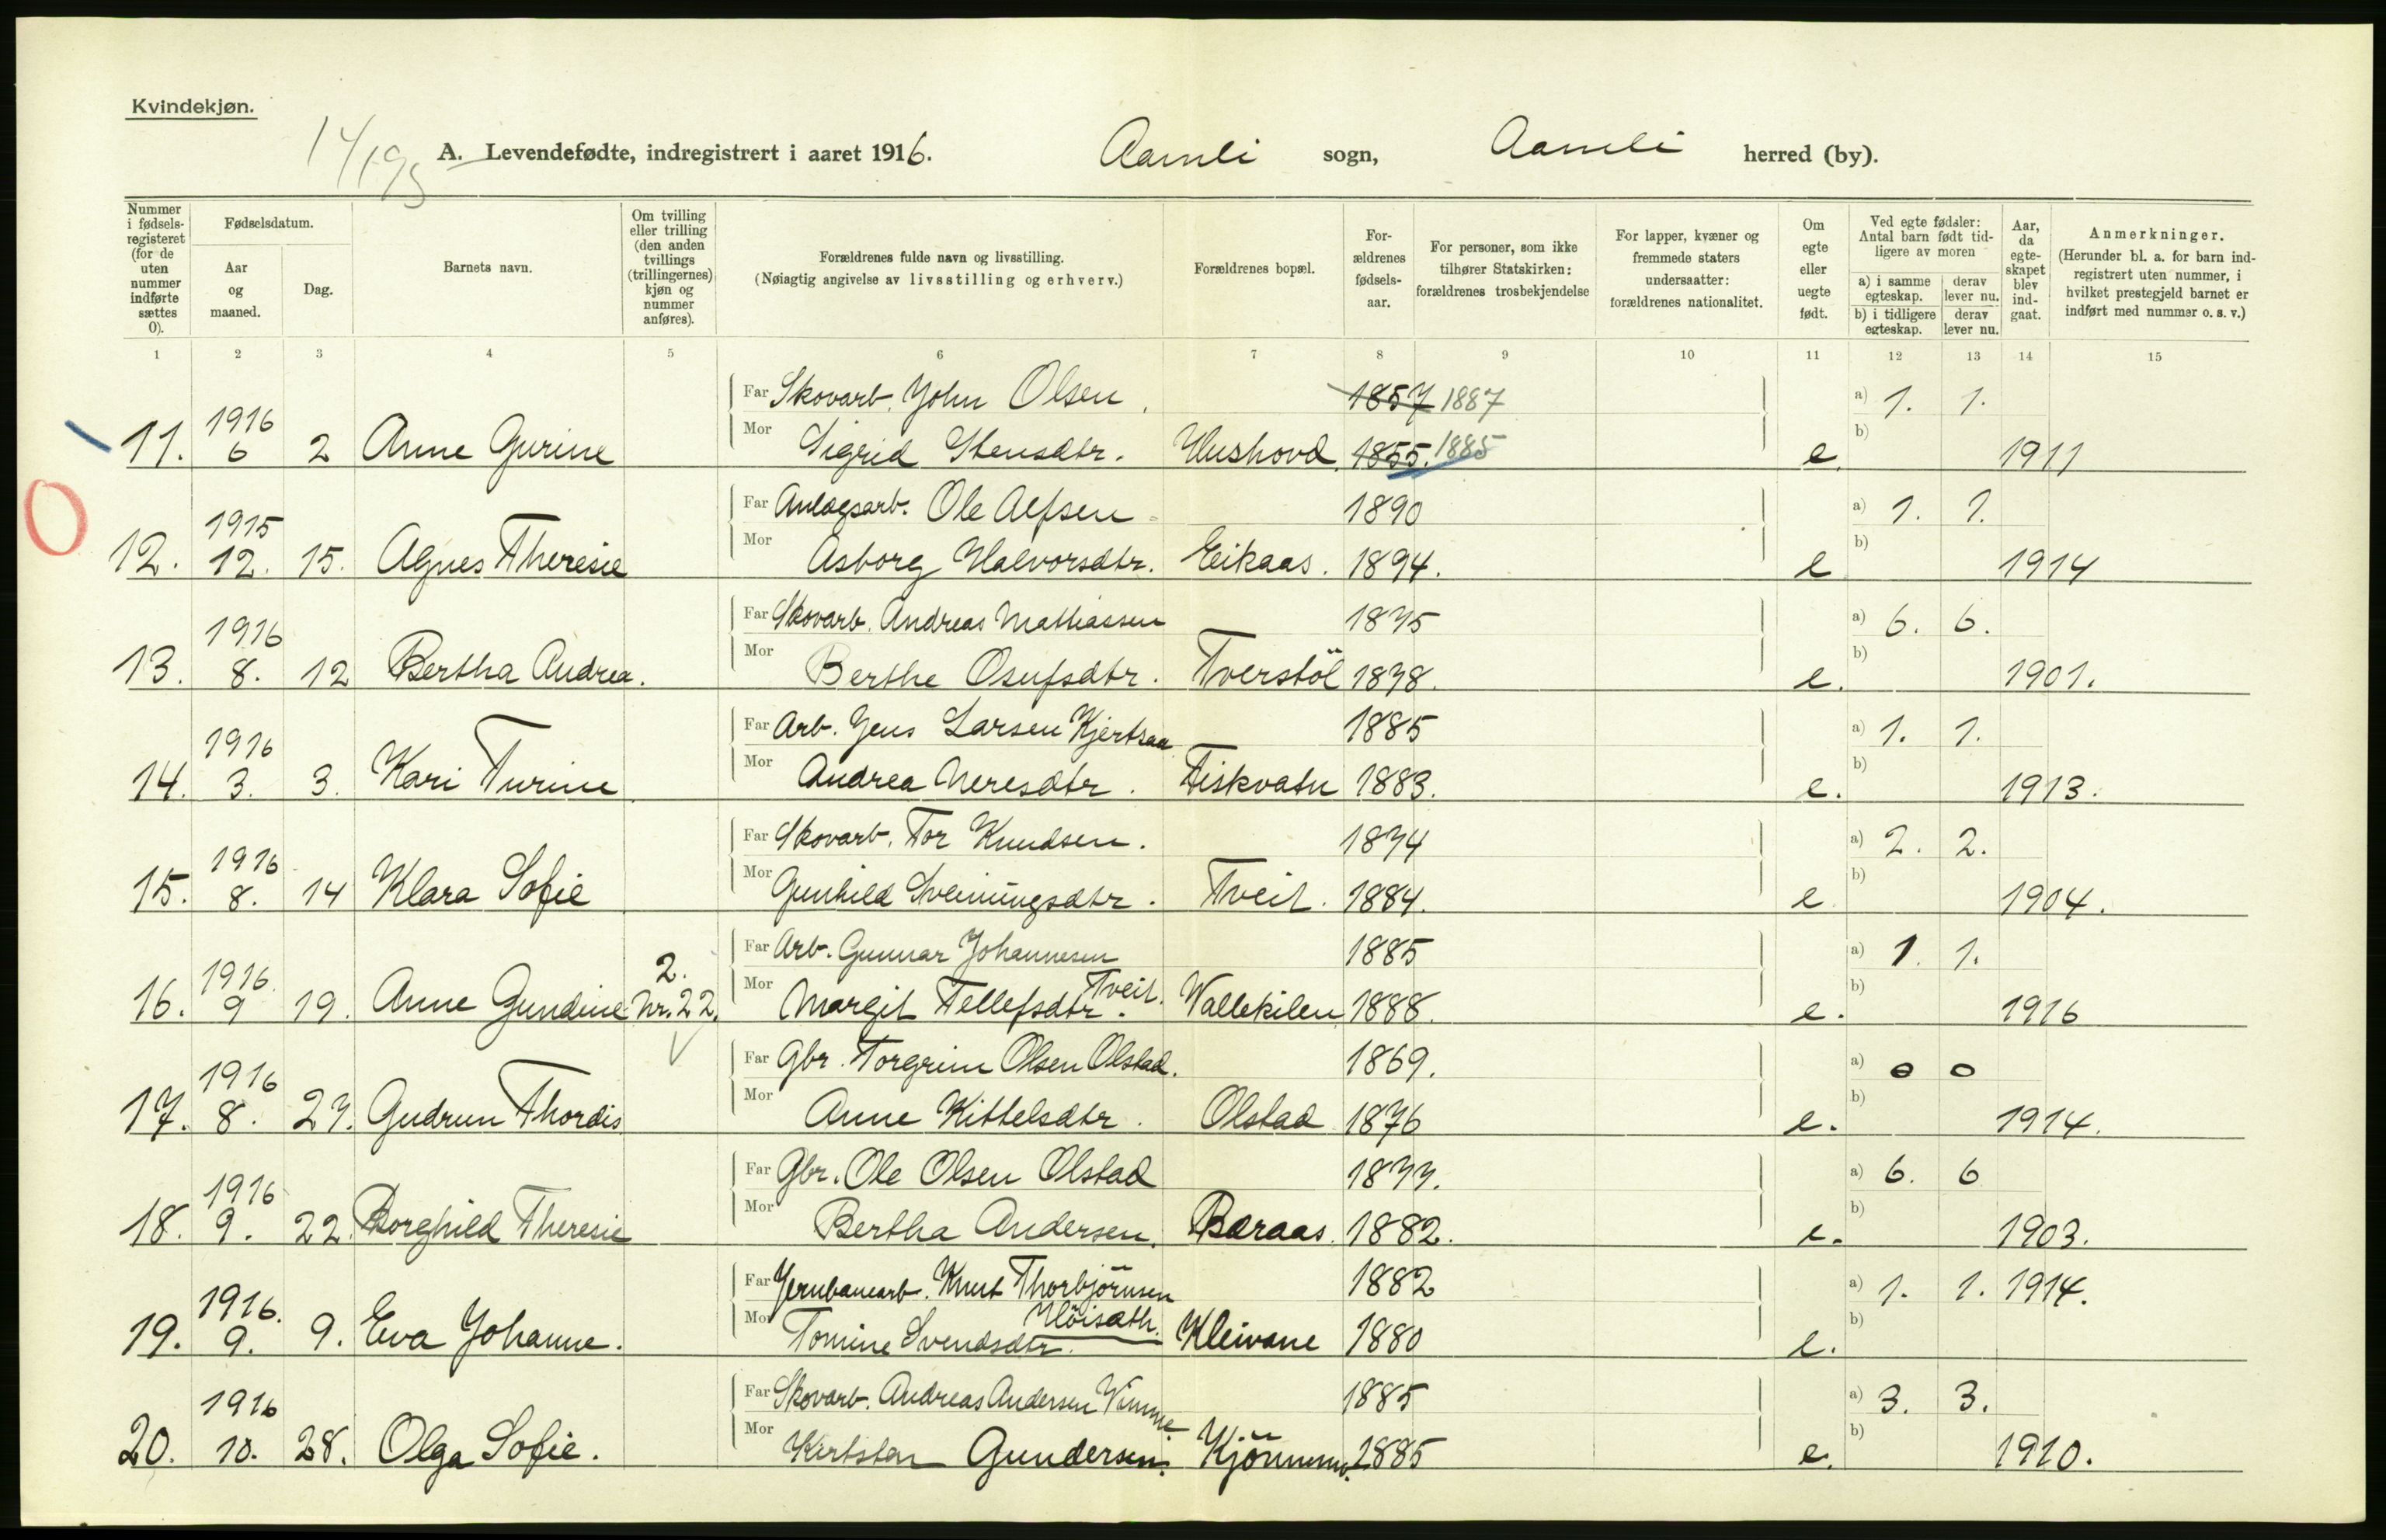 Kvindekjøn.
A. Levendefødte, indregistrert i aaret 1916. Aamli sogn, Aamli herred (by).
Nummer i fødsels-registeret (for de uten nummer indførte sættes 0).
Fødselsdatum.
Aar og maaned.
Dag.
Barnets navn.
Om tvilling eller trilling (den anden tvillings (trillingernes) kjøn og nummer anføres).
Forældrenes fulde navn og livsstilling.
(Nøiagtig angivelse av livsstilling og erhverv.)
Forældrenes bopæl.
For-ældrenes fødsels-aar.
For personer, som ikke tilhører Statskirken: forældrenes trosbekjendelse
For lapper, kvæner og fremmede staters undersaatter: forældrenes nationalitet.
Om egte eller uegte født.
Ved egte fødsler: Antal barn født tid-ligere av moren
a) i samme egteskap.
derav lever nu.
b) i tidligere egteskap.
derav lever nu.
Aar, da egte-skapet blev ind-gaat.
Anmerkninger.
(Herunder bl. a. for barn ind-registrert uten nummer, i hvilket prestegjeld barnet er indført med nummer o. s. v.)
1 2 3 4 5 6 7 8 9 10 11 12 13 14 15
Far Skovarb. John Olsen. 1857 1887 a) 1. 1.
1916
11. 6 2 Anne Gurine Mor Sigrid Stensdtr. Hushovd. 1855. 1885 e. b) 1911
Far Anlægsarb. Ole Alfsen 1890 a) 1. 1.
1915
12. 12. 15. Agnes Theresie Mor Asborg Halvorsdtr. Eikaas. 1894. e b) 1914
Far Skovarb. Andreas Mathiassen 1875 a) 6. 6.
1916
13. 8. 12 Bertha Andrea. Mor Berthe Osufsdtr. Tverstöl 1878. e. b) 1901.
Far Arb. Jens Larsen Kjertsaa 1885 a) 1. 1.
1916
14. 3. 3. Kari Turine Mor Andrea Neresdtr. Fiskvatn 1883. e. b) 1913.
Far Skovarb. Tor Knudsen. 1874 a) 2. 2.
1916
15. 8. 14 Klara Sofie Mor Gunhild Sveinungsdtr. Tveit. 1884. e b) 1904.
Far Arb. Gunnar Johannesen 1885 a) 1. 1.
1916. 2.
16. 9 19. Anne Gundine Nr. 22. Mor Margit Tellefsdtr. Tveit. Wallekilen 1888. e. b) 1916
Far Gbr. Torgrim Olsen Olstad. 1869. a) 0 0
1916
17. 8. 27. Gudrun Thordis Mor Anne Kittelsdtr. Olstad 1876 e. b) 1914.
Far Gbr. Ole Olsen Olstad 1877. a) 6. 6
1916
18. 9. 22. Borghild Theresie Mor Bertha Andersen. Baraas. 1882. e. b) 1903.
Far Jernbanearb. Knut Thorbjörnsen 1882 a) 1. 1. 1914.
1916. Höisæth.
19. 9. 9. Eva Johanne. Mor Tomine Svendsdtr. Kleivane 1880 e. b)
Far Skovarb. Andreas Andersen Vimme 1885 a) 3. 3.
1916
20. 10. 28. Olga Sofie. Mor Gundersen. 1885 e. b) 1910.